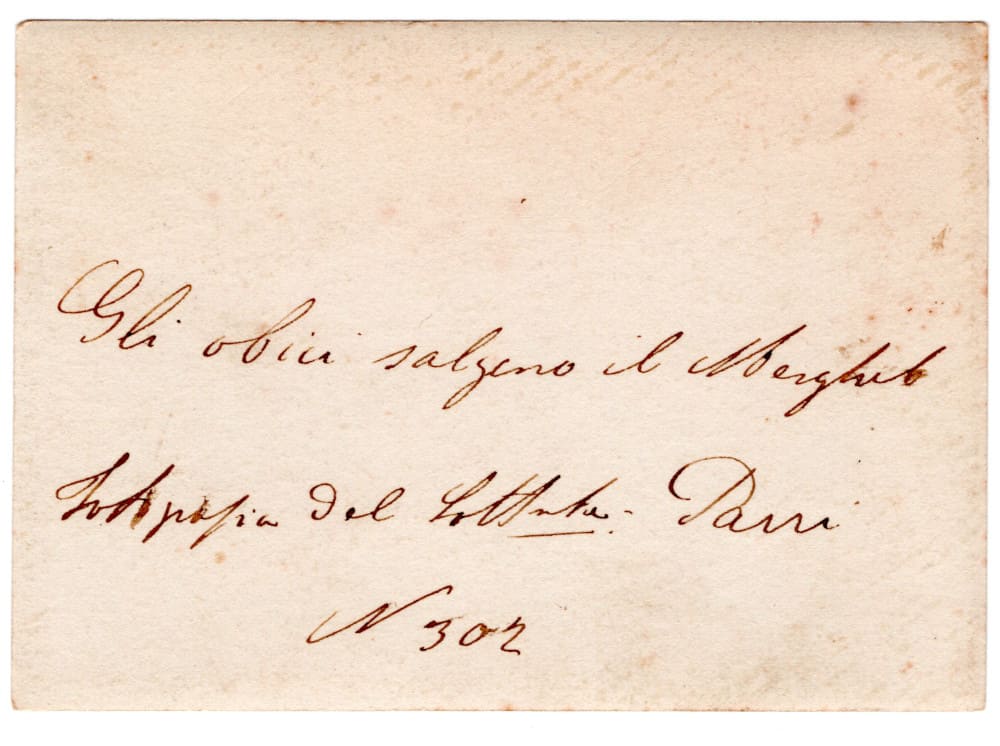 Gli obici salgono il Mergheb
Fotografia del Sott.
Parri
N 302